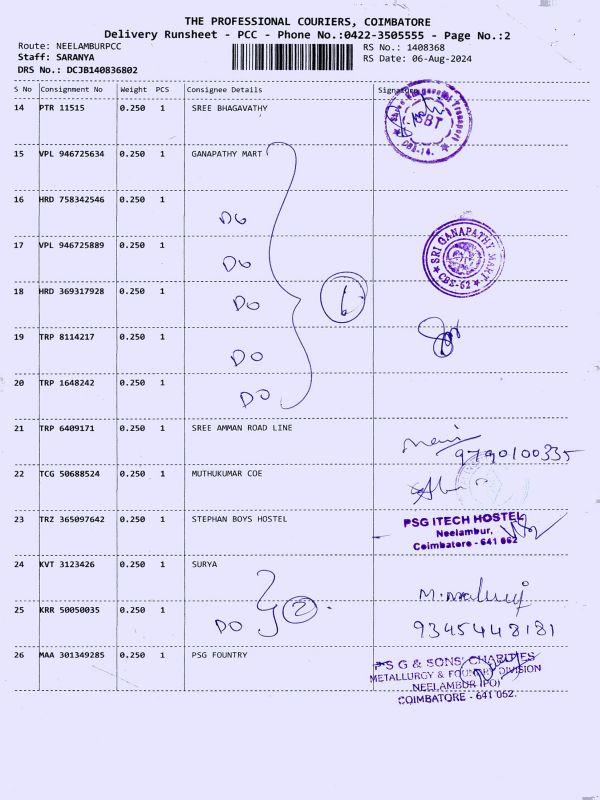 THE PROFESSIONAL COURIERS, COIMBATORE
Delivery Runsheet - PCC - Phone No.:0422-3505555 - Page No.:2
Route: NEELAMBURPCC RS No.: 1408368
Staff: SARANYA RS Date: 06-Aug-2024
DRS No.: DCJB140836802
S No Consignment No Weight PCS Consignee Details Signature
14 PTR 11515 0.250 1 SREE BHAGAVATHY
SBT
CBE-14.
15 VPL 946725634 0.250 1 GANAPATHY MART
16 HRD 758342546 0.250 1
DO
SRI GANAPATHY MART
CBE-62
17 VPL 946725889 0.250 1
DO
18 HRD 369317928 0.250 1
DO 6
19 TRP 8114217 0.250 1
DO
20 TRP 1648242 0.250 1
DO
21 TRP 6409171 0.250 1 SREE AMMAN ROAD LINE
9790100335
22 TCG 50688524 0.250 1 MUTHUKUMAR COE
23 TRZ 365097642 0.250 1 STEPHAN BOYS HOSTEL
PSG ITECH HOSTEL
Neelambur,
Coimbatore - 641 062
24 KVT 3123426 0.250 1 SURYA
25 KRR 50050035 0.250 1
DO 2
9345448181
26 MAA 301349285 0.250 1 PSG FOUNTRY
P S G & SONS' CHARITIES
METALLURGY & FOUNDRY DIVISION
NEELAMBUR (PO)
COIMBATORE - 641 062.